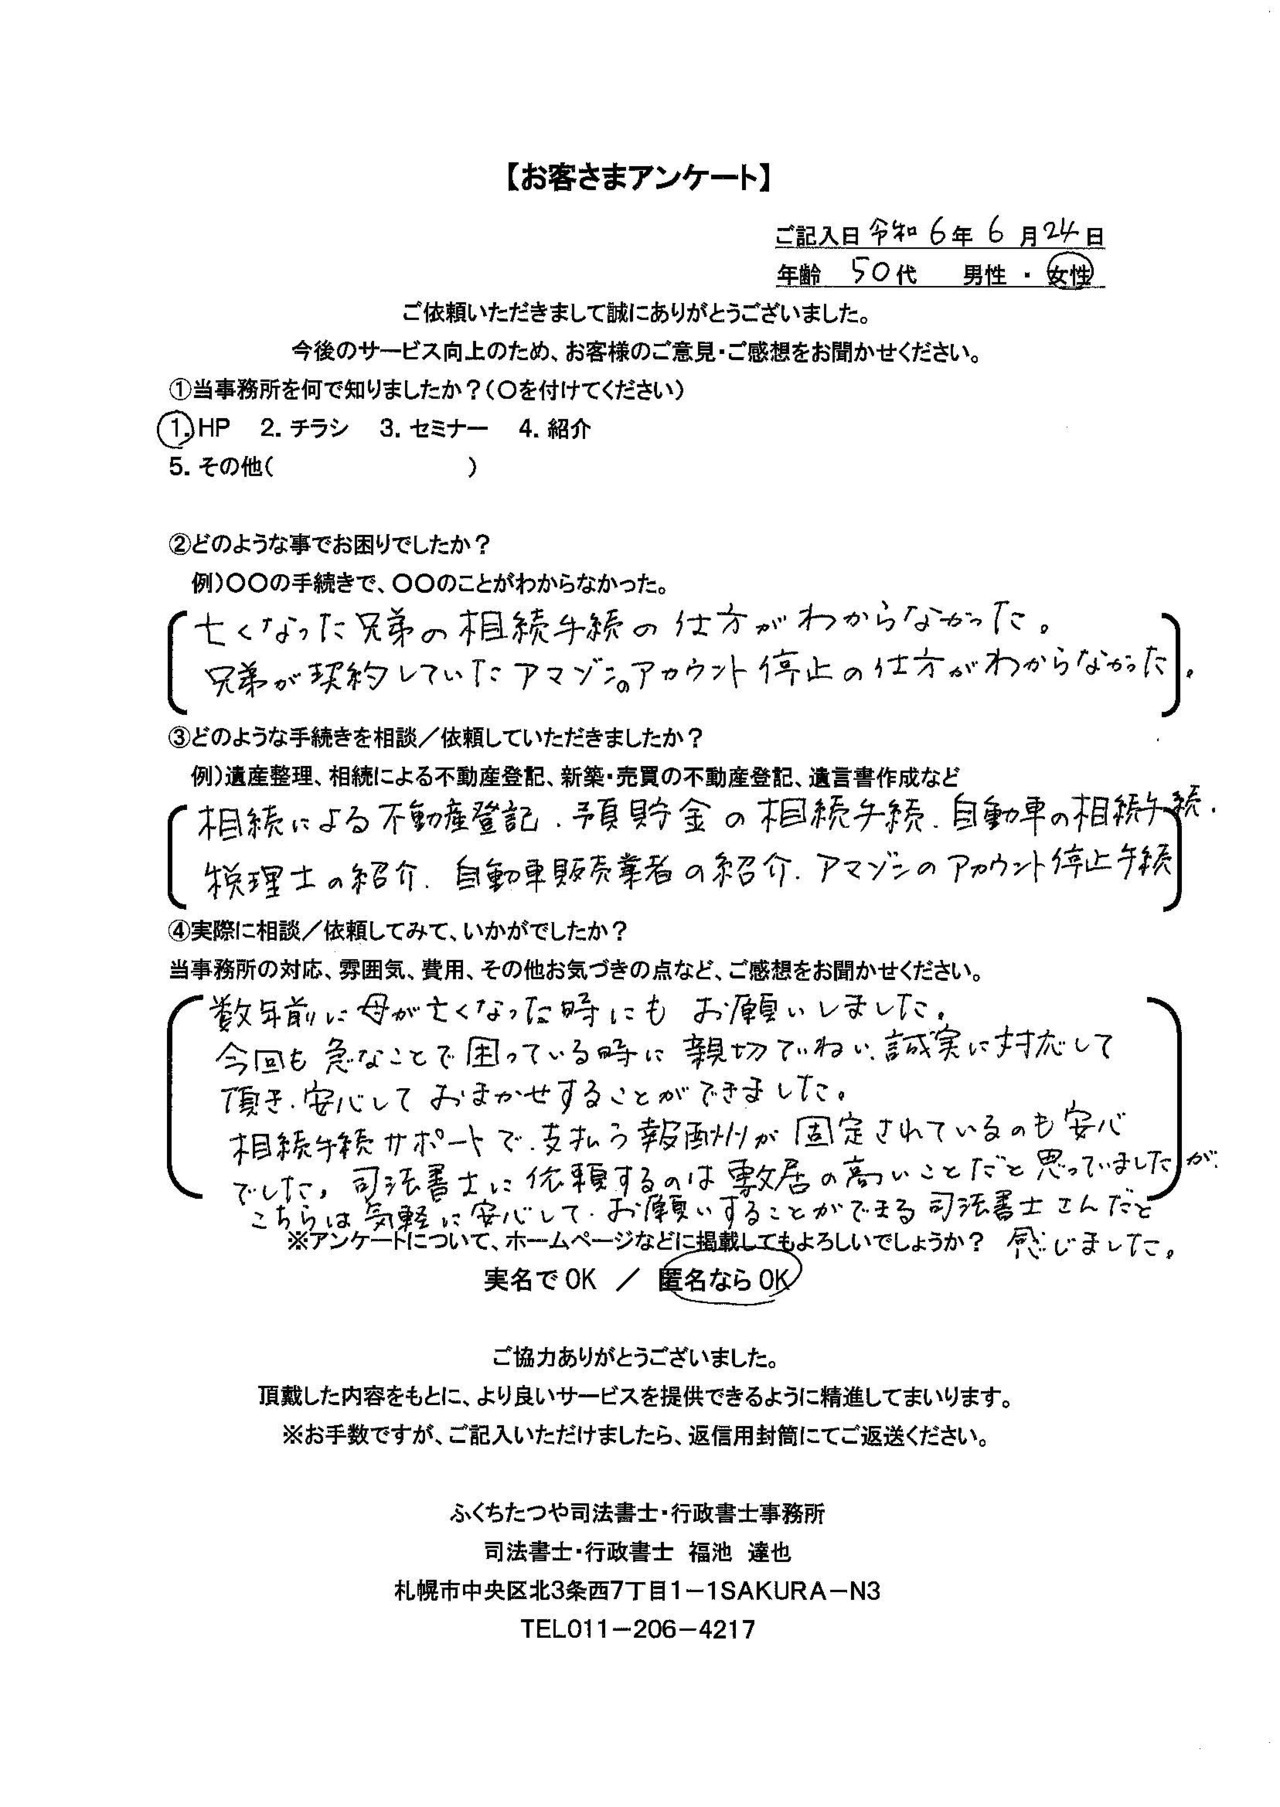 【お客さまアンケート】
ご記入日 令和6年6月24日
年齢 50代 男性・女性
ご依頼いただきまして誠にありがとうございました。
今後のサービス向上のため、お客様のご意見・ご感想をお聞かせください。
①当事務所を何で知りましたか？(〇を付けてください)
1. HP 2. チラシ 3. セミナー 4. 紹介
5. その他( )
②どのような事でお困りでしたか？
例)〇〇の手続きで、〇〇のことがわからなかった。
亡くなった兄弟の相続手続の仕方がわからなかった。
兄弟が契約していたアマゾンのアカウント停止の仕方がわからなかった。
③どのような手続きを相談／依頼していただきましたか？
例)遺産整理、相続による不動産登記、新築・売買の不動産登記、遺言書作成など
相続による不動産登記、予貯金の相続手続、自動車の相続手続、
税理士の紹介、自動車販売業者の紹介、アマゾンのアカウント停止手続
④実際に相談／依頼してみて、いかがでしたか？
当事務所の対応、雰囲気、費用、その他お気づきの点など、ご感想をお聞かせください。
数年前に母が亡くなった時にもお願いしました。
今回も急なことで困っている時に親切ていねい、誠実に対応して
頂き、安心しておまかせすることができました。
相続手続サポートで、支払う報酬が固定されているのも安心
でした。司法書士に依頼するのは敷居の高いことだと思っていましたが、
こちらは気軽に安心して、お願いすることができる司法書士さんだと
感じました。
※アンケートについて、ホームページなどに掲載してもよろしいでしょうか？
実名でOK ／ 匿名ならOK
ご協力ありがとうございました。
頂戴した内容をもとに、より良いサービスを提供できるように精進してまいります。
※お手数ですが、ご記入いただけましたら、返信用封筒にてご返送ください。
ふくちたつや司法書士・行政書士事務所
司法書士・行政書士 福池 達也
札幌市中央区北3条西7丁目1－1SAKURA－N3
TEL011－206－4217